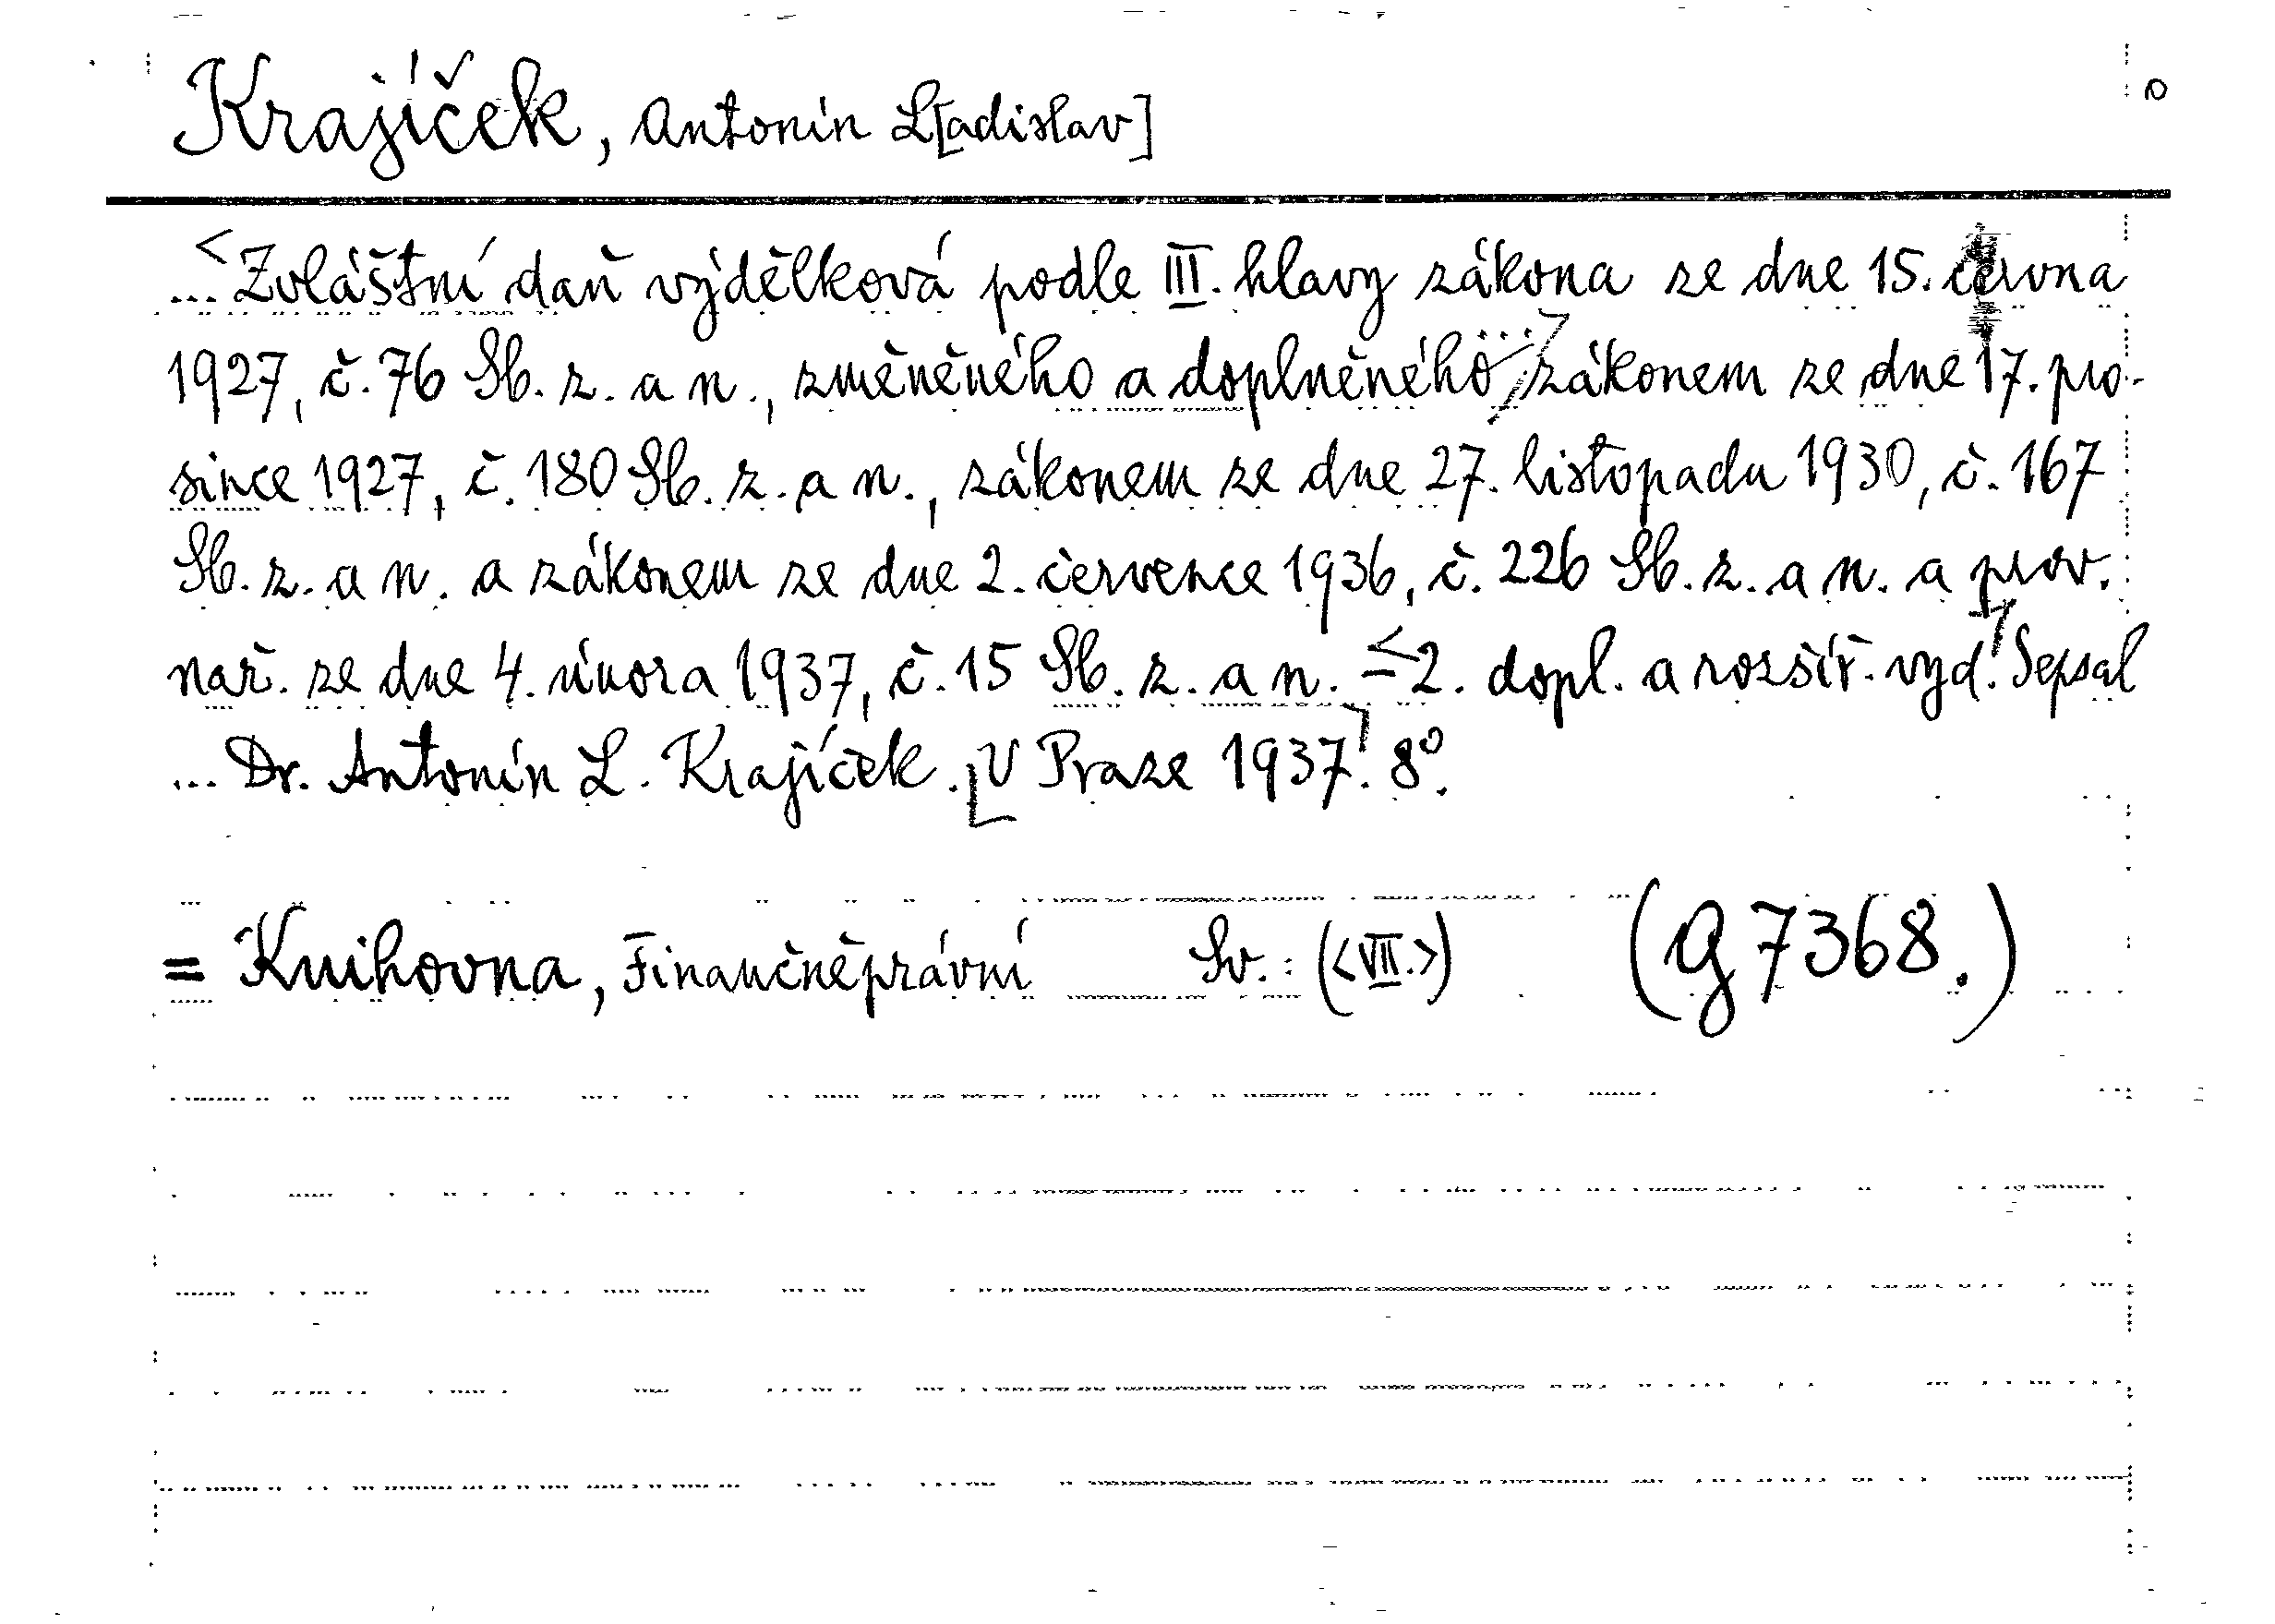 Krajíček, Antonín L[adislav]
... <Zvláštní daň výdělková podle III. hlavy zákona ze dne 15. června
1927, č. 76 Sb. z. a n., změněného a doplněného ...> zákonem ze dne 17. pro-
since 1927, č. 180 Sb. z. a n., zákonem ze dne 27. listopadu 1930, č. 167
Sb. z. a n. a zákonem ze dne 2. července 1936, č. 226 Sb. z. a n. a prov.
nař. ze dne 4. února 1937, č. 15 Sb. z. a n. = <2. dopl. a rozšíř. vyd.> Sepsal
... Dr. Antonín L. Krajíček. [V Praze 1937]. 8°.
= Knihovna, Finančněprávní Sv.: (<VII.>) (g 7368.)